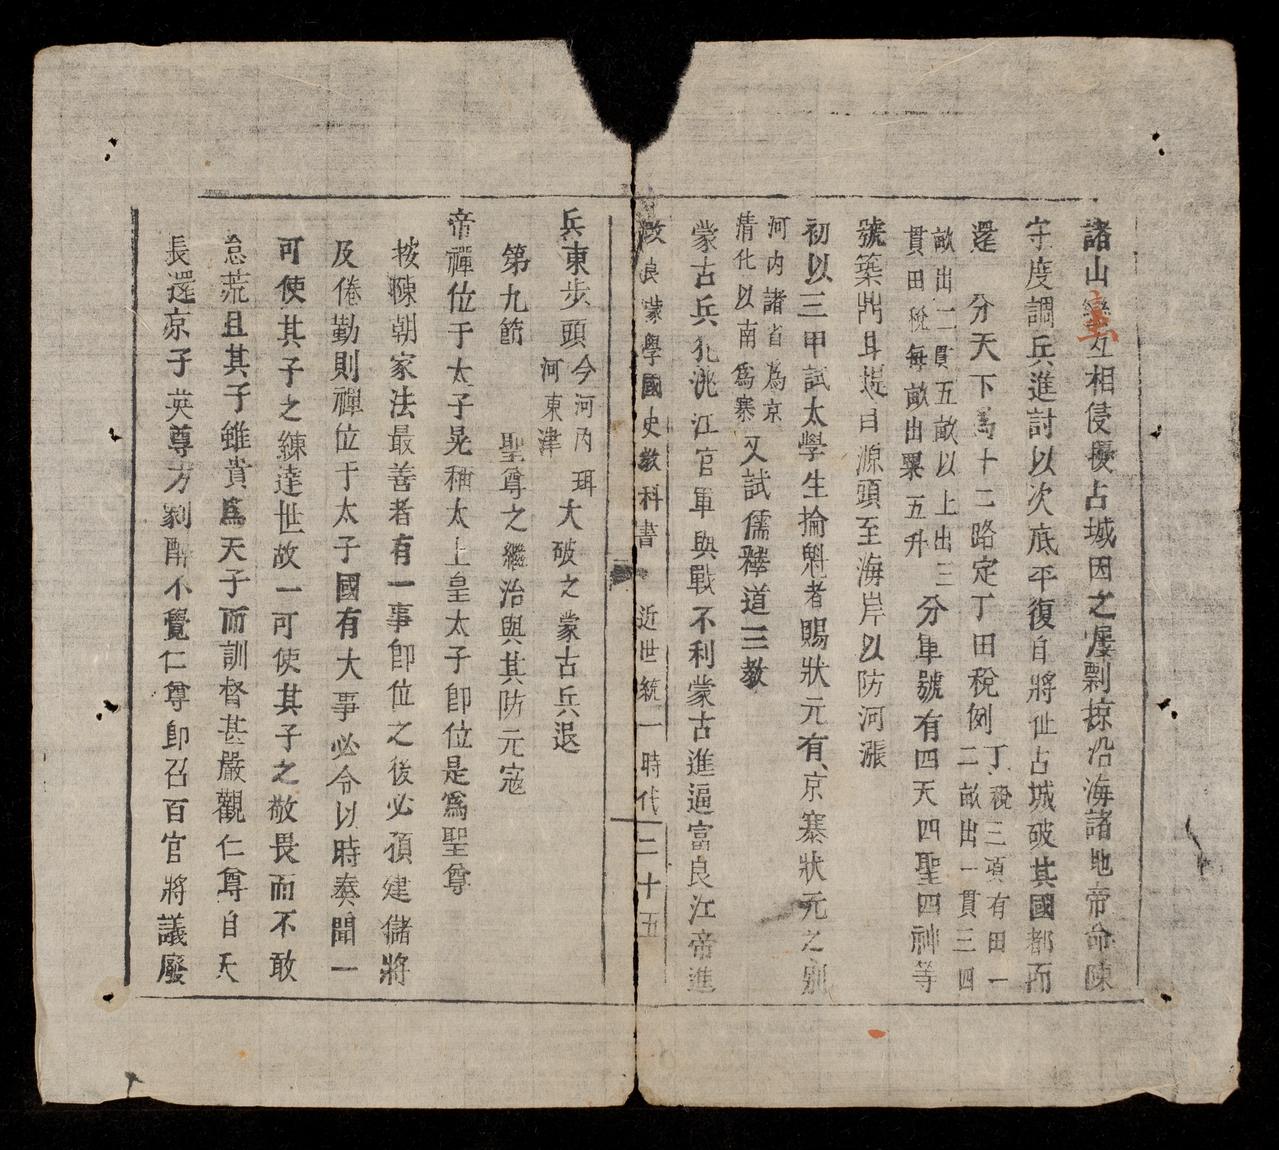 諸山蠻互相侵擾占城因之屢剽掠沿海諸地帝命陳
守度調兵進討以次底平復自將征占城破其國都而
還　分天下爲十二路定丁田稅例丁稅三項有田一二畝出一貫三四
畝出二貫五畝以上出三貫田稅每畝出粟五升分軍號有四天四聖四神等
號築鼎耳堤自源頭至海岸以防河漲
初以三甲試太學生掄魁者賜狀元有京寨狀元之別
河內諸省爲京清化以南爲寨又試儒釋道三教
蒙古兵犯洮江官軍與戰不利蒙古進逼富良江帝進
改良蒙學國史教科書　近世統一時代二十五
兵東步頭今河內珥河東津大破之蒙古兵退
第九節　聖尊之繼治與其防元寇
帝禪位于太子晃稱太上皇太子卽位是爲聖尊
按陳朝家法最善者有一事卽位之後必預建儲將
及倦勤則禪位于太子國有大事必令以時奏聞一
可使其子之練達世故一可使其子之敬畏而不敢
怠荒且其子雖貴爲天子而訓督甚嚴觀仁尊自天
長還京子英尊方劇醉不覺仁尊卽召百官將議廢